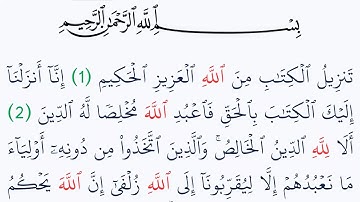 بِسْمِ ٱللَّهِ ٱلرَّحْمَٰنِ ٱلرَّحِيمِ
تَنزِيلُ ٱلْكِتَٰبِ مِنَ ٱللَّهِ ٱلْعَزِيزِ ٱلْحَكِيمِ (1) إِنَّآ أَنزَلْنَآ
إِلَيْكَ ٱلْكِتَٰبَ بِٱلْحَقِّ فَٱعْبُدِ ٱللَّهَ مُخْلِصًا لَّهُ ٱلدِّينَ (2)
أَلَا لِلَّهِ ٱلدِّينُ ٱلْخَالِصُ ۚ وَٱلَّذِينَ ٱتَّخَذُوا۟ مِن دُونِهِۦٓ أَوْلِيَآءَ
مَا نَعْبُدُهُمْ إِلَّا لِيُقَرِّبُونَآ إِلَى ٱللَّهِ زُلْفَىٰٓ إِنَّ ٱللَّهَ يَحْكُمُ